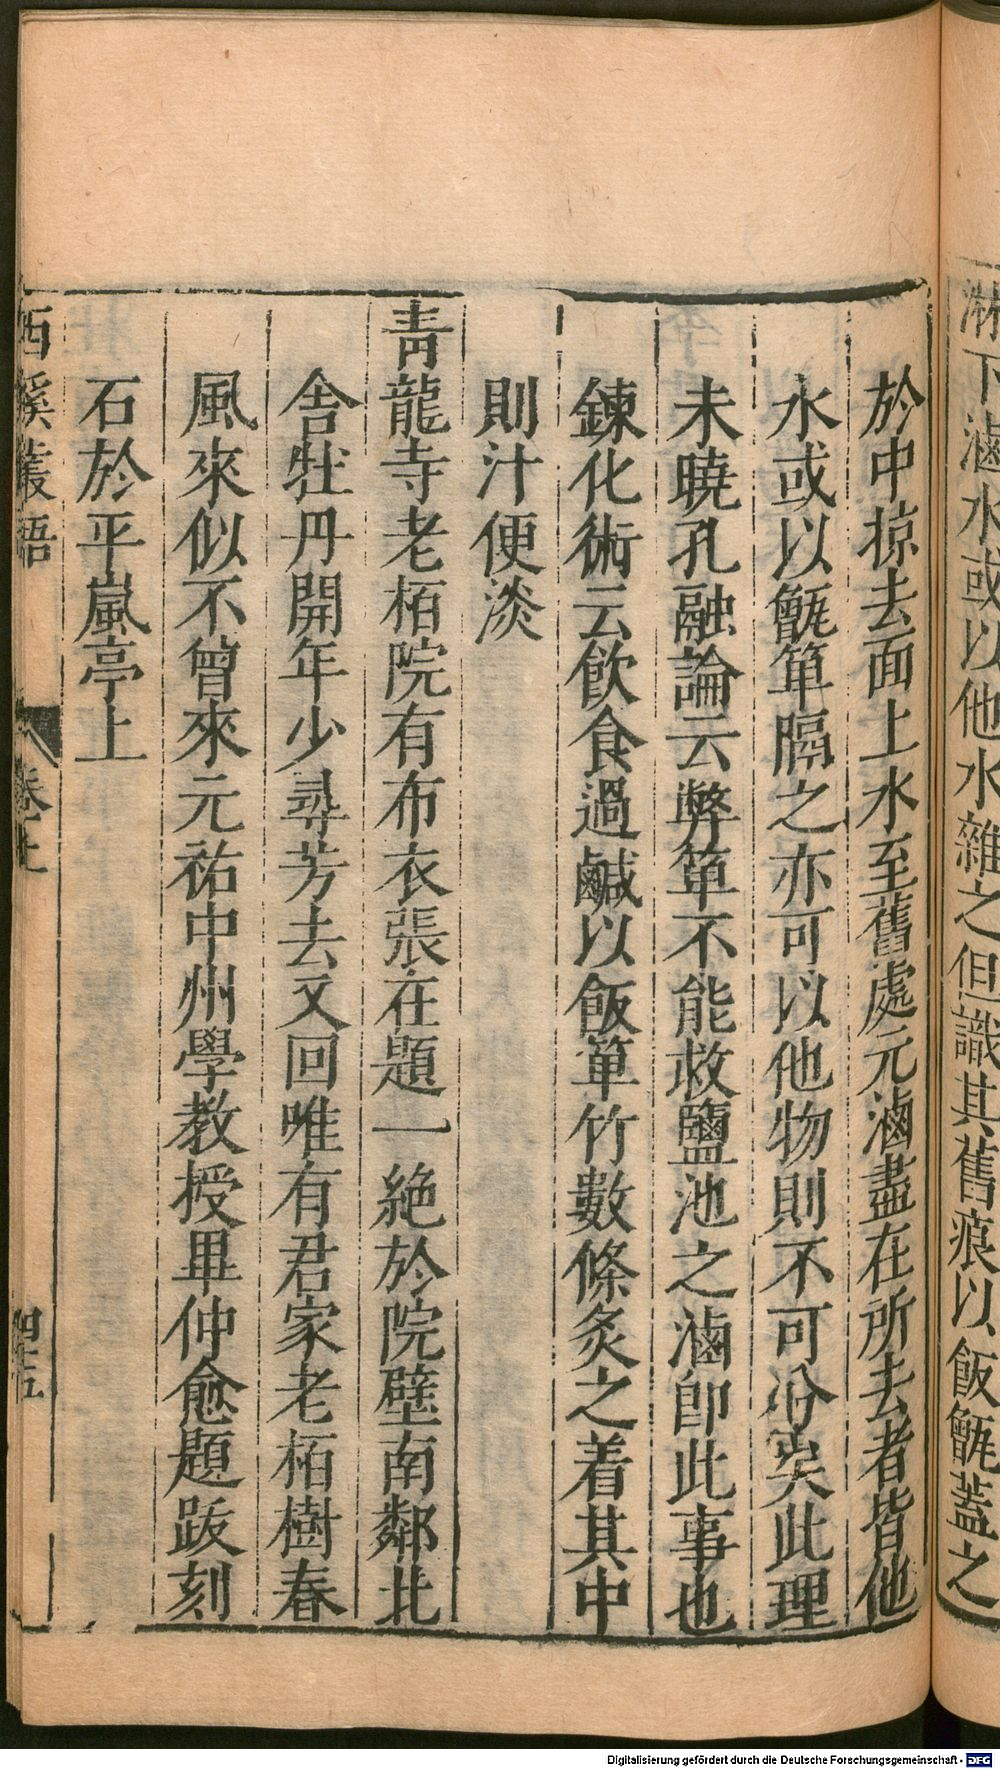 淋下滷水或以他水雜之但識其舊痕以飯甑蓋之
於中掠去面上水至舊處元滷盡在所去者皆他
水或以甑箄隔之亦可以他物則不可分矣此理
未曉孔融論云弊箄不能救鹽池之滷卽此事也
鍊化術云飲食過鹹以飯箄竹數條炙之着其中
則汁便淡
青龍寺老栢院有布衣張在題一絶於院壁南鄰北
舍牡丹開年少尋芳去又回唯有君家老栢樹春
風來似不曾來元祐中州學教授畢仲愈題跋刻
石於平嵐亭上
西溪叢語 卷上 四十五
Digitalisierung gefördert durch die Deutsche Forschungsgemeinschaft - DFG